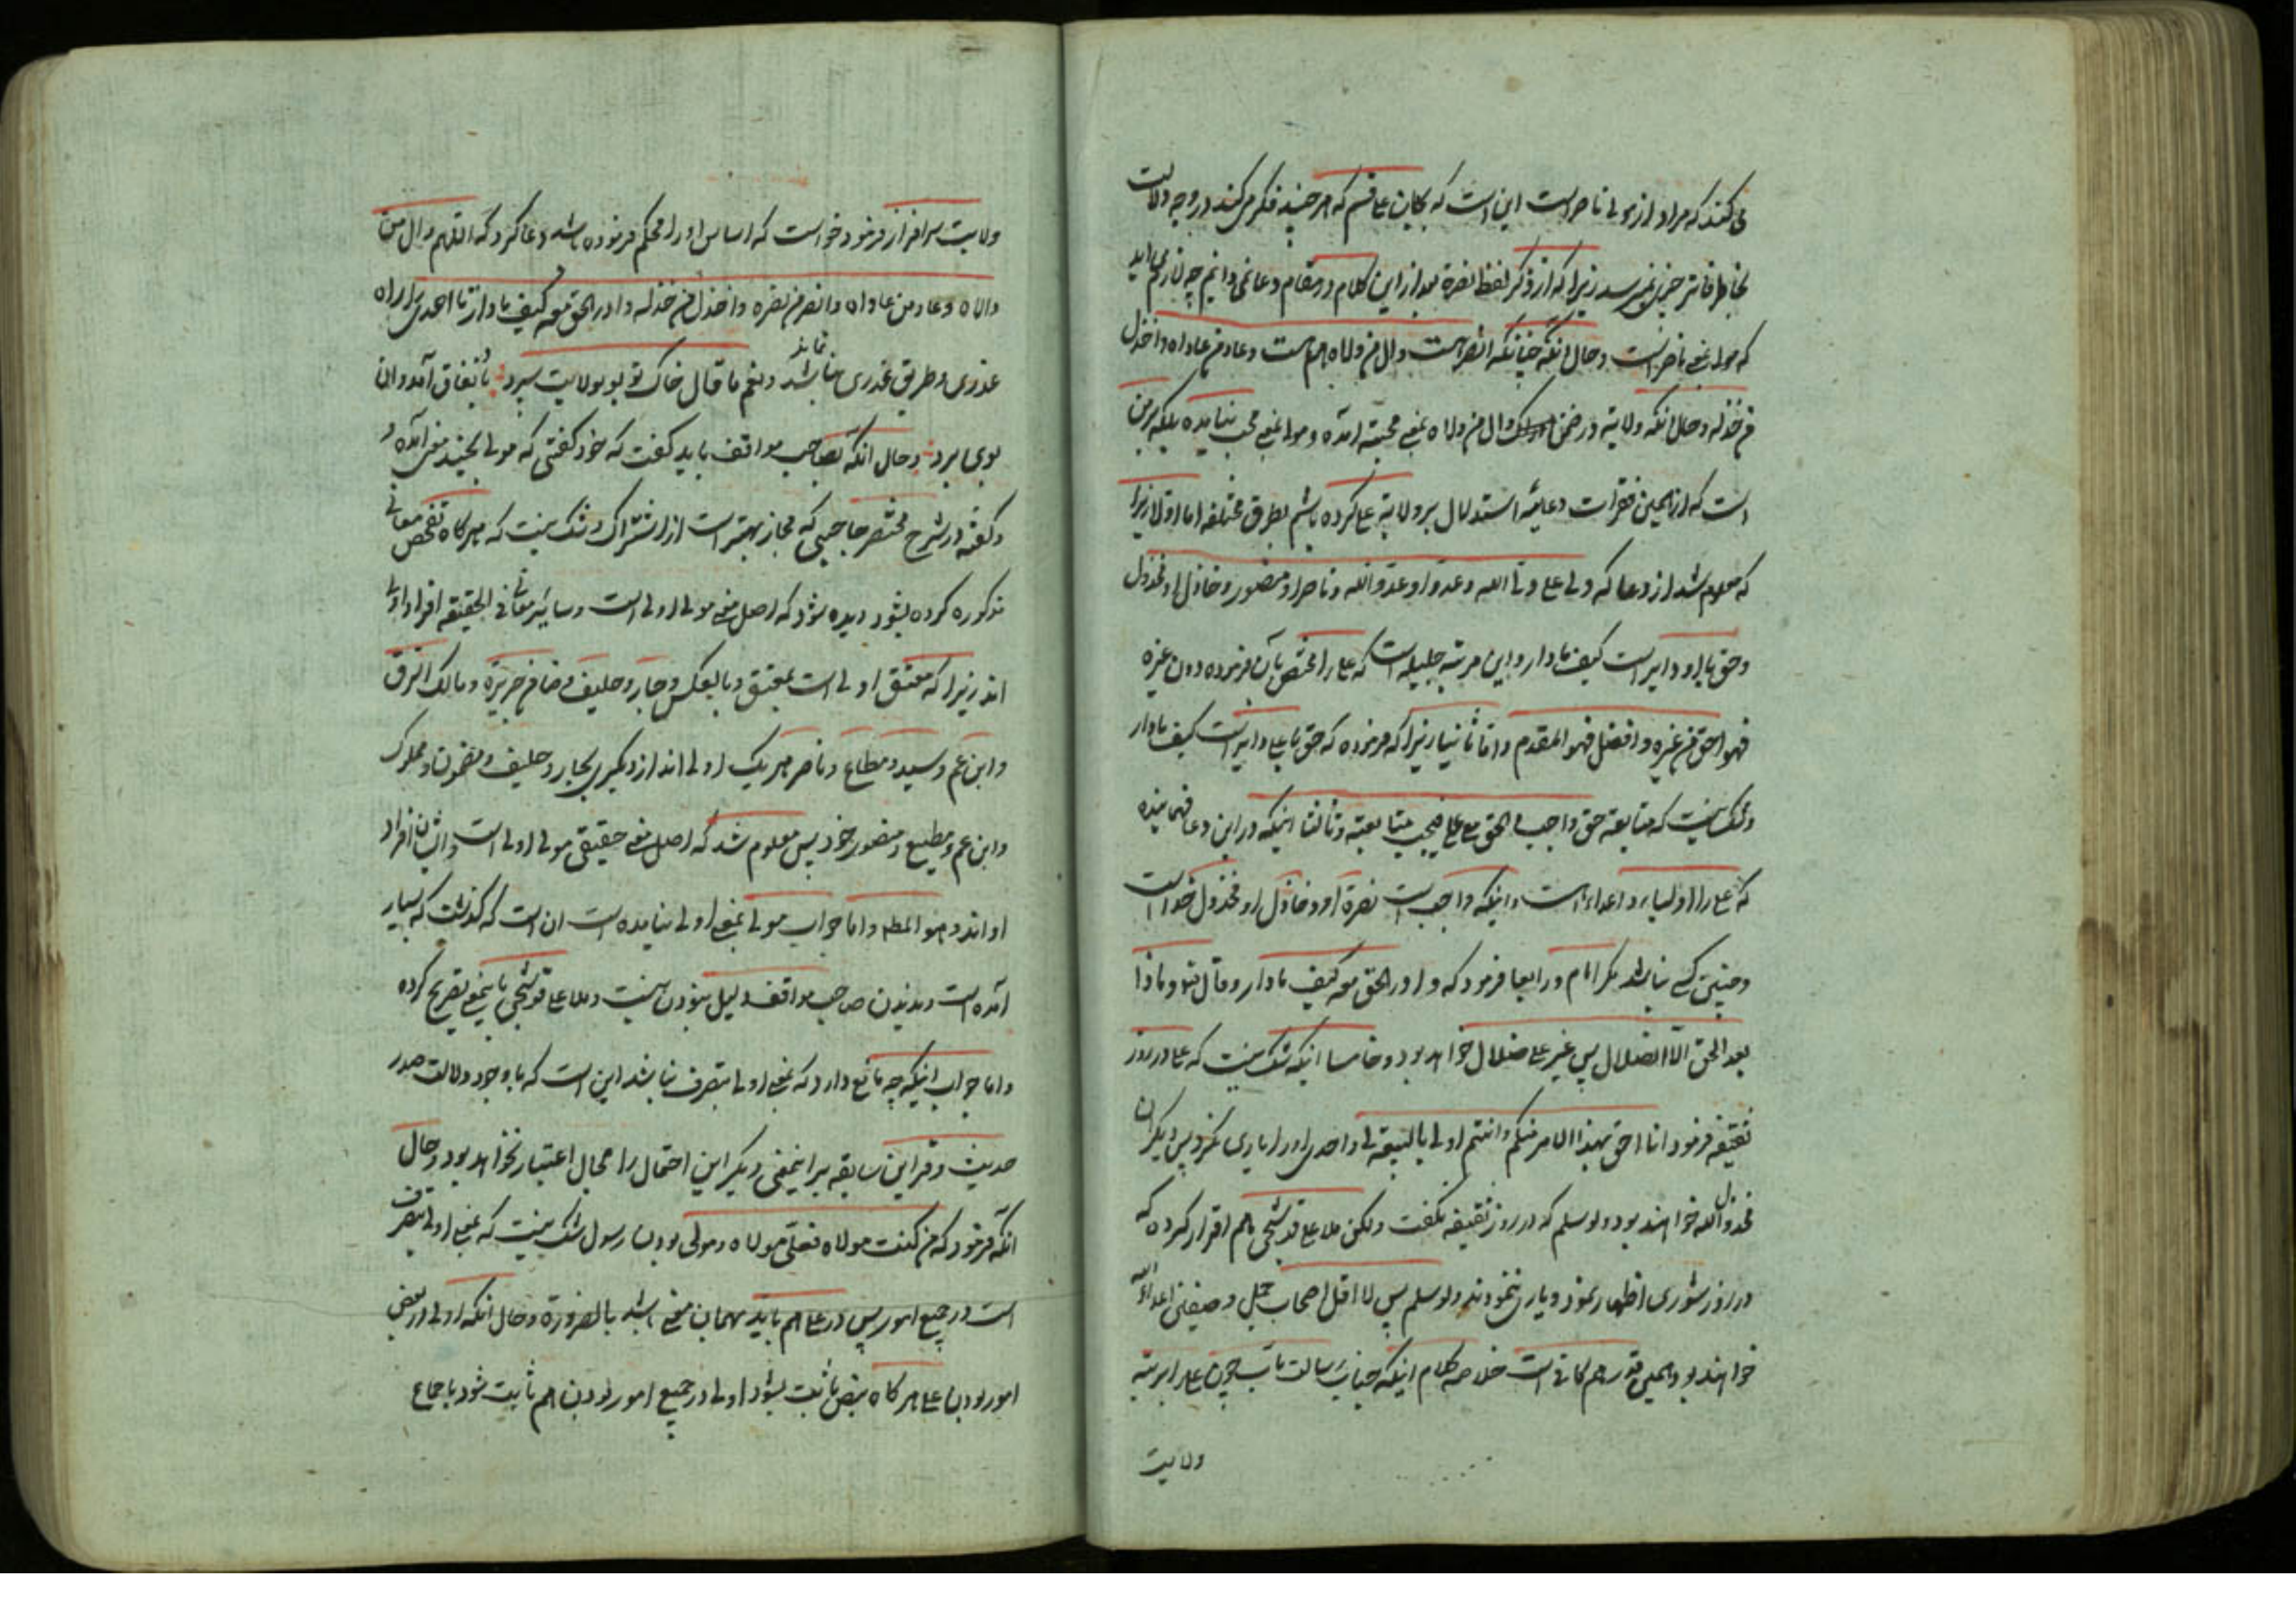 می‌کند که مراد از مولی ناصر است این است که بجان علی قسم که هر چند فکر می‌کند در وجه دلالت
بخاطر فاتر چیزی نمیرسد زیرا که از ذکر لفظ نصرة بعد از این کلام در مقام دعا نمی‌دانیم چه لازم می‌اید
که مولی بمعنی ناصر است و حال انکه چنانکه انصر هست وال من والاه هم هست وعاد من عاداه واخذل
من خذله و حال انکه ولایة در ضمن وال من والاه بمعنی محبة آمده و مولی بمعنی محب نیامده بلکه بر من
است که از همین فقرات دعائیه استدلال بر ولایة علی کرده باشم بطرق مختلفه اما اولا زیرا
که معلوم شد از دعا که ولی علی ولی الله وعدو او عدو الله وناصر او منصور وخاذل او مخذول
وحق با او دایر است کیف ما دار و این مرتبه جلیله است که علی را مختص بآن فرموده دون غیره
فهو احق من غیره وافضل فهو المقدم واما ثانیا زیرا که فرموده که حق با علی دایر است کیف ما دار
وشک نیست که متابعة حق واجب والحق مع علی فیجب متابعته وثالثا اینکه در این دعا فهمانیده
که علی را اولیاء و اعداء است واینکه واجب است نصرة او وخاذل او مخذول خداست
وچنین کسی نباشد مگر امام ورابعا فرمود که وادر الحق معه کیف ما دار وقال تعالی وماذا
بعد الحق الا الضلال پس غیر علی ضلال خواهد بود وخامسا اینکه شک نیست که علی در روز
ثقیفه فرمود انا احق بهذا الامر منکم وانتم اولی بالبیعة لی واحدی او را یاری نکرد پس دیگران
مخذول الله خواهند بود ولو سلم که در روز ثقیفه نگفت ولکن ملا علی قوشجی هم اقرار کرده که
در روز شوری اظهار نمود ویاری ننمودند ولو سلم پس لا اقل اصحاب جمل وصفین اعداء الله
خواهند بود وهمین قدر هم کافی است خلاصه کلام اینکه جناب رسالت مآب چون علی را بمرتبه
ولایت
ولایت سرافراز فرمود خواست که اساس او را محکم فرموده باشد دعا کرد که اللهم وال من
والاه وعاد من عاداه وانصر من نصره واخذل من خذله وادر الحق معه کیف ما دار تا احدی را راه
عذری وطریق غدری نباشد نماند ونعم ما قال خاک تو بو بولایت سپرد تا بنفاق آمد وان
بوی ببرد وحال انکه بصاحب مواقف باید گفت که خود گفتی که مولی بچند معنی آمده و
وگفته در شرح مختصر حاجبی که مجاز بهتر است از اشتراک وشک نیست که هرگاه تفحص معانی
مذکوره کرده بشود دیده شود که اصل معنی مولی اولی است وسایر معانی فی الحقیقه افراد اولی
اند زیرا که معتق اولی است بمعتق وبالعکس وجار وحلیف وضامن جریرة ومالک الرق
وابن عم وسید ومطاع وناصر هر یک اولی اند از دیگری بجار وحلیف ومضمون ومملوک
وابن عم ومطیع ومنصور خود پس معلوم شد که اصل معنی حقیقی مولی اولی است وایشان افراد
او اند وهو المطلوب واما جواب مولی بمعنی اولی نیامده است ان است که گذشت که بسیار
آمده است وندیدن صاحب مواقف دلیل نبودن نیست وملا علی قوشجی باینمعنی تصریح کرده
واما جواب اینکه چه مانع دارد که بمعنی اولی بتصرف نباشد این است که با وجود دلالت صدر
حدیث وقراین سابقه بر اینمعنی دیگر این احتمال را مجال اعتبار نخواهد بود وحال
انکه فرمود که من کنت مولاه فعلی مولاه ومولی بودن رسول شک نیست که بمعنی اولی بتصرف
است در جمیع امور پس در علی هم باید بهمان معنی باشد بالضرورة وحال انکه اولی در بعض
امور بودن علی هرگاه بنص ثابت بشود اولی در جمیع امور بودن هم ثابت شود باجماع